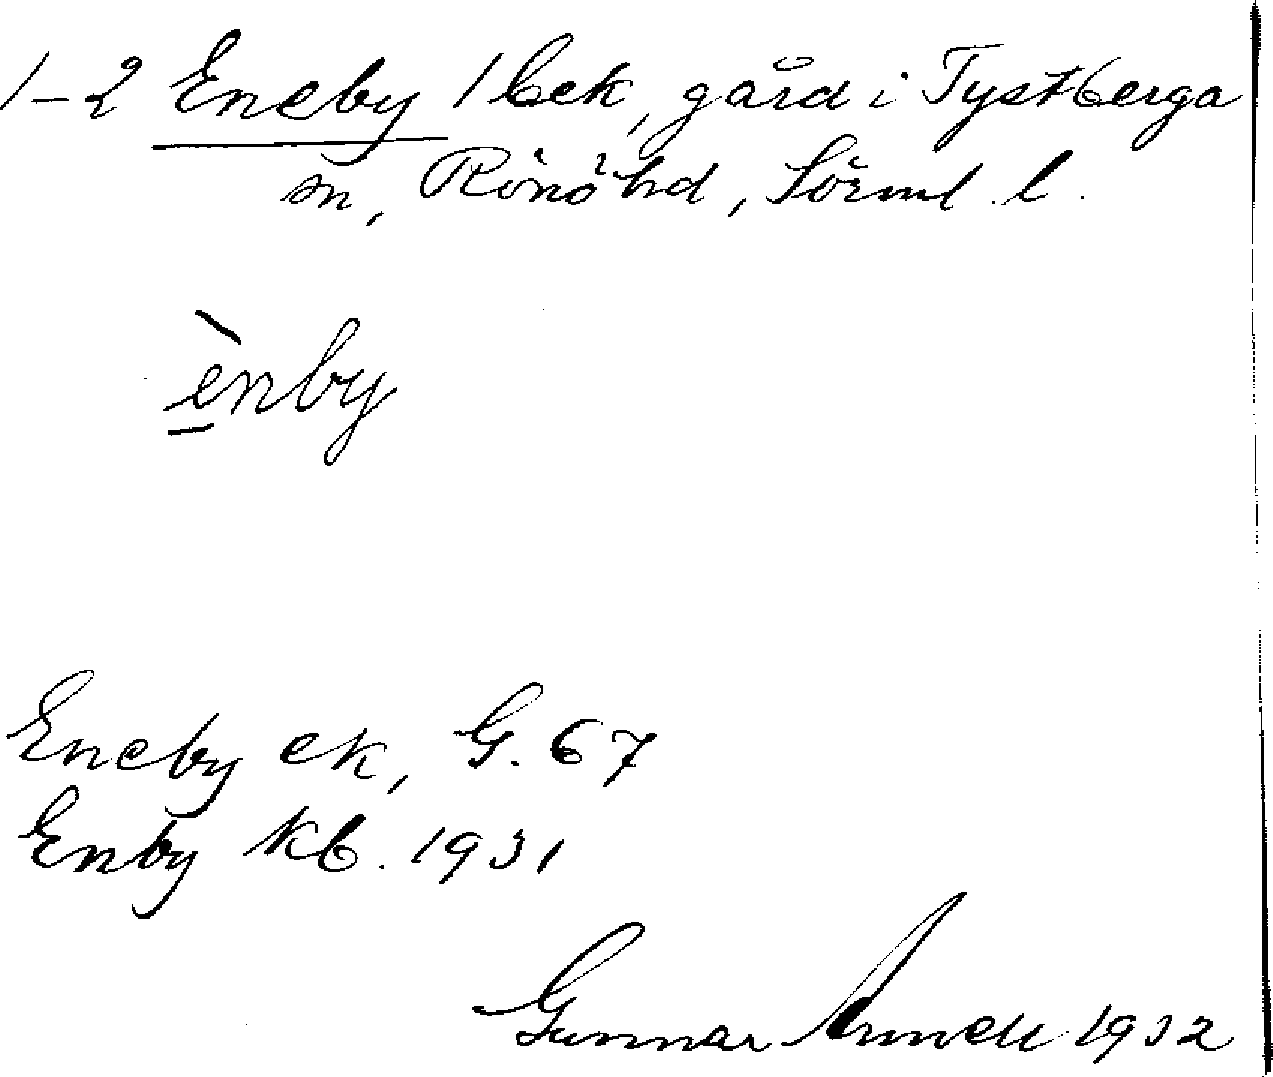 1-2 Eneby 1 bek, gård i Tystberga
sn, Rönö hd, Sörml. l.
ènby
Eneby ek, G. 67
Enby kb. 1931
Gunnar 1932